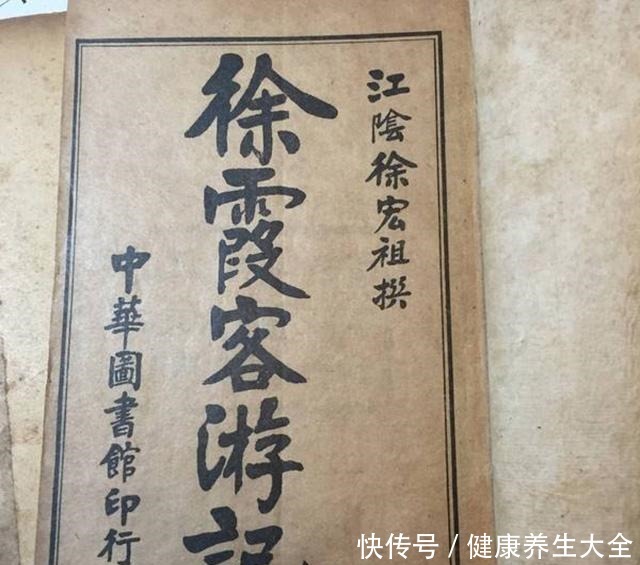 江陰徐宏祖撰
徐霞客游記
中華圖書館印行
快传号 / 健康养生大全